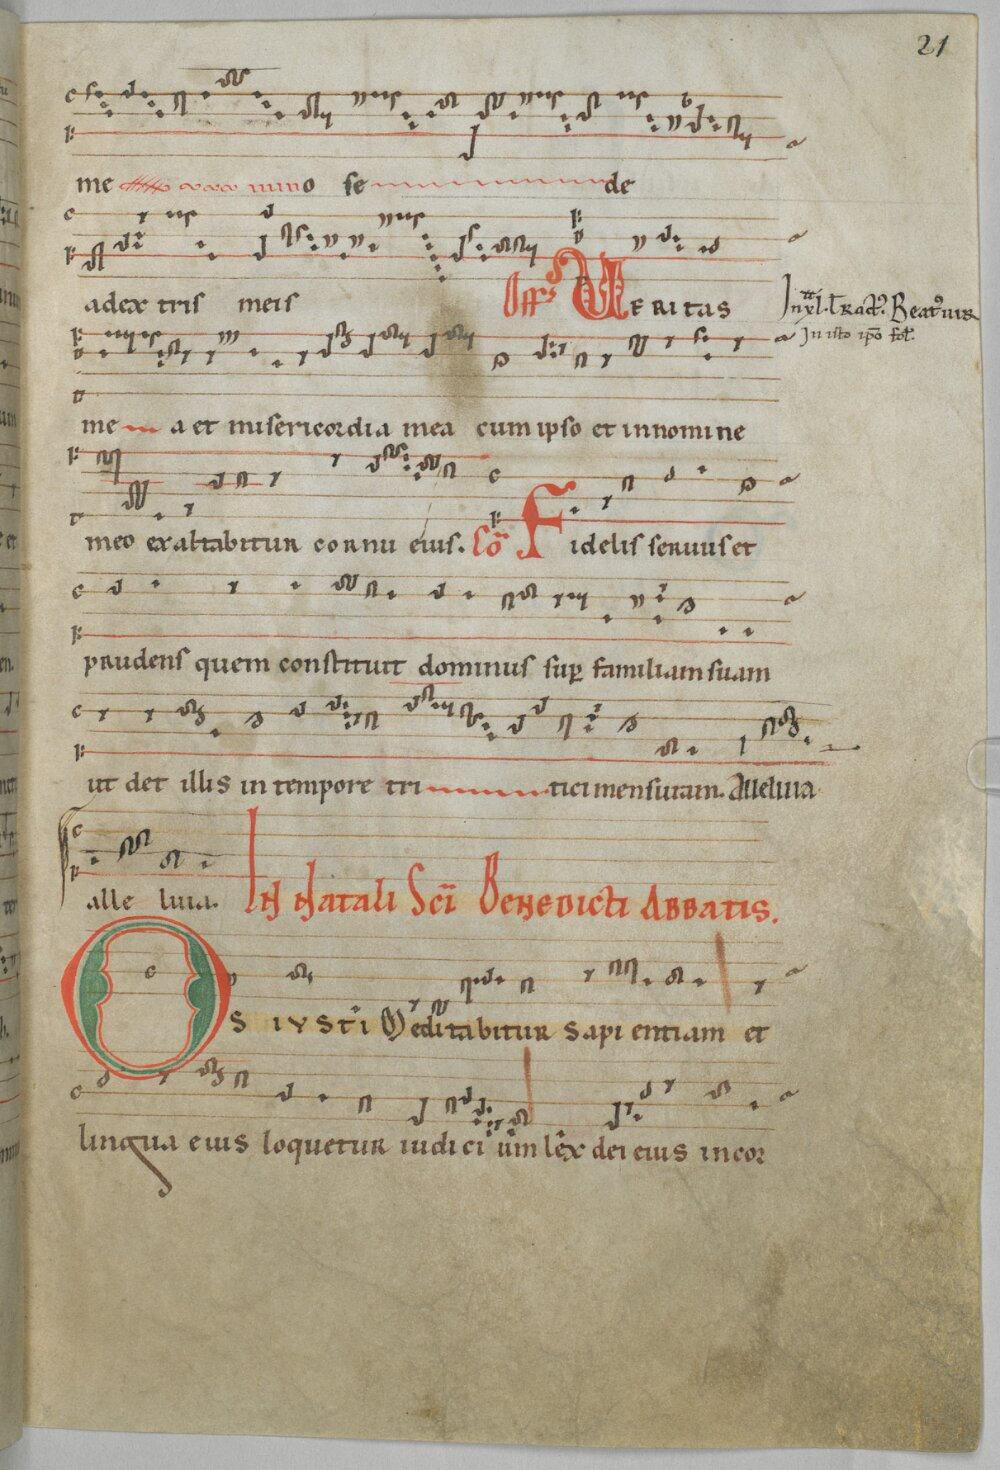 21
me o se de
adex tris meis Offs VERITAS
Jn xl. tract9. Beat9 uir
Jn isto
me a et misericordia mea cum ipso et innomine
meo exaltabitur cornu eius. Cō Fidelis seruus et
prudens quem constituit dominus sup familiam suam
ut det illis in tempore tri tici mensuram. Alleluia
alle luia. IN Natali Sci Benedicti Abbatis.
OS IVSTI Meditabitur sapi entiam et
lingua eius loquetur iudici um lex dei eius incor